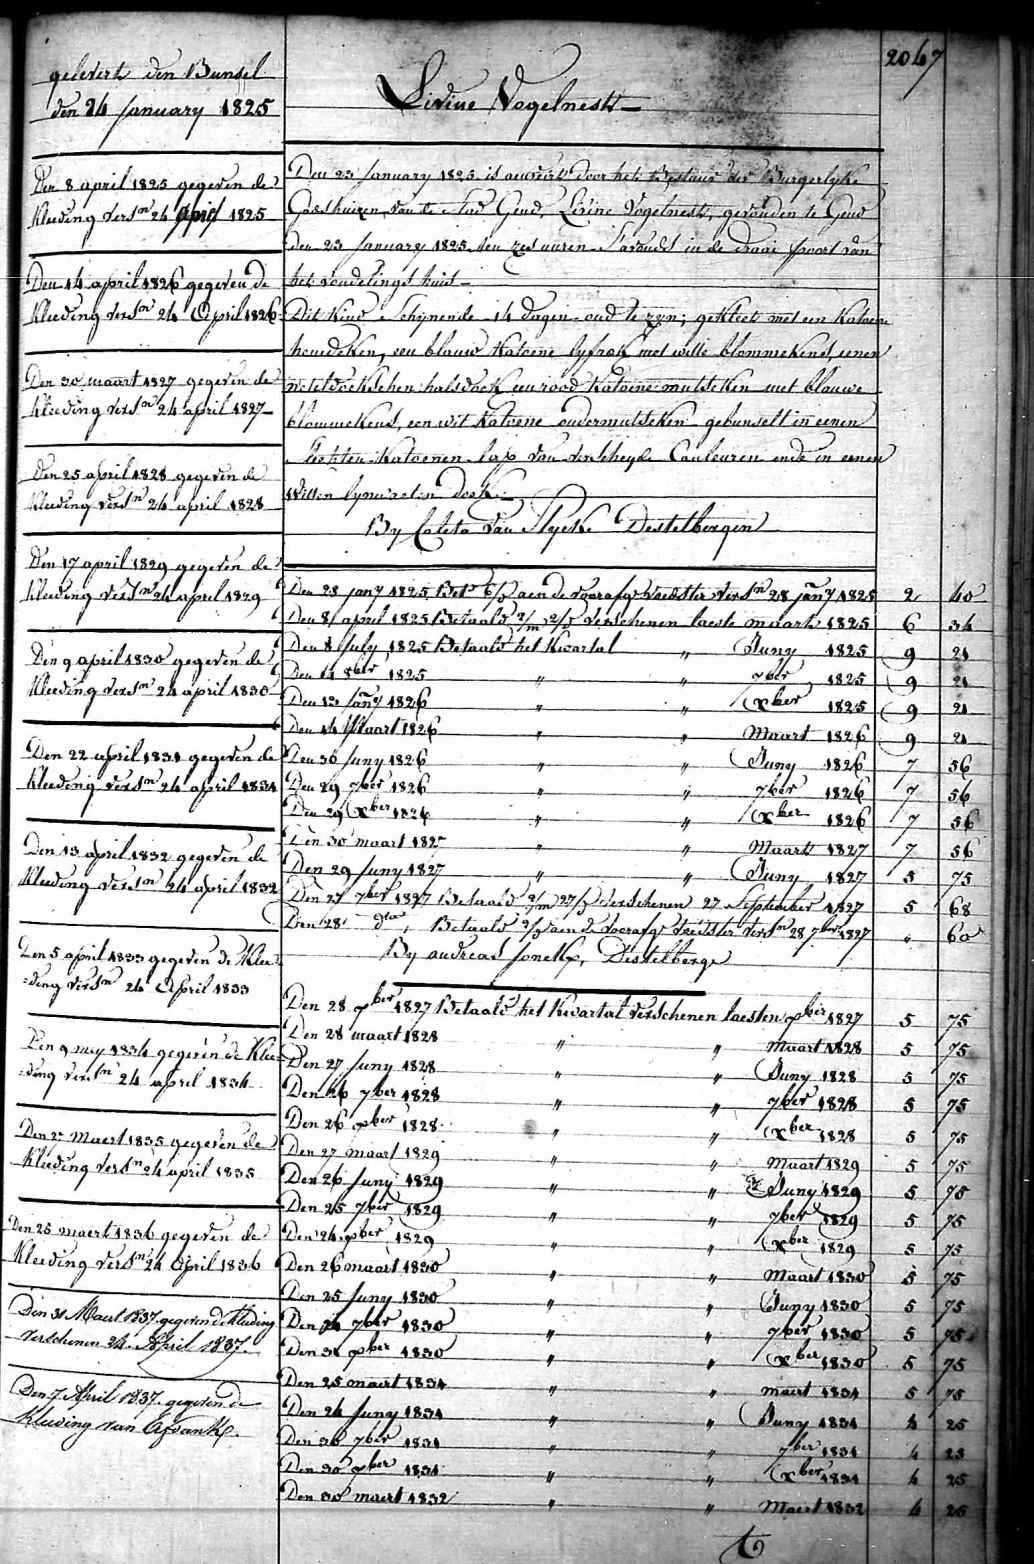 2047
gelevert den Bunsel
den 24 January 1825
Livine Vogelnest
Den 8 april 1825 gegeven de
Kleeding versn 24 april 1825
Den 14 april 1826 gegeven de
Kleeding versn 24 April 1826
Den 30 maart 1827 gegeven de
kleeding versn 24 april 1827
Den 25 april 1828 gegeven de
kleeding versn 24 april 1828
Den 17 april 1829 gegeven de
kleeding versn 24 april 1829
Den 9 april 1830 gegeven de
Kleeding versn 24 april 1830
Den 22 april 1831 gegeven de
kleeding versn 24 april 1831
Den 13 april 1832 gegeven de
kleeding versn 24 april 1832
Den 5 april 1833 gegeven de Klee-
=ding versn 24 April 1833
Den 9 mey 1834 gegeven de Klee-
=ding versn 24 april 1834
Den 2 Maert 1835 gegeven de
kleeding versn 24 april 1835
Den 25 maert 1836 gegeven de
Kleeding versn 24 April 1836
Den 31 Maert 1837 gegeven de kleeding
verschenen 24 April 1837.
Den 7 April 1837 gegeven de
Kleeding van
Den 23 January 1825 is door het Bestuur der Burgerlyke
Godshuizen, van de Stad Gend, Livine Vogelnest, gevonden te Gend
den 23 January 1825 ten zes uuren S'avonds in de draai poort van
het vondelings huis
Dit kind schynende 14 dagen oud te zyn; gekleet met een katoene
hemdeken, een blauw katoene lyfrok met witte blommekens, eenen
halsdoek een rood katoene mutseken met blauwe
blommekens, een wit katoene ondermutseken gebunselt in eenen
katoenen lap van verscheyde Couleuren ende in eenen
witten lynwaeten doek.
By Coleta Van Destelbergen
Den 28 jany 1825 Bett aen de voorafge voedster versn 28 jany 1825 2 40
Den 8 april 1825 Betaald verschenen laeste maart 1825 6 34
Den 8 July 1825 Betaald het Kwartal " Juny 1825 9 21
Den 14 8ber 1825 " " 7ber 1825 9 21
Den 13 Jany 1826 " " Xber 1825 9 21
Den 14 Maart 1826 " " Maart 1826 9 21
Den 30 Juny 1826 " " Juny 1826 7 56
Den 29 7ber 1826 " " 7ber 1826 7 56
Den 29 Xber 1826 " " Xber 1826 7 56
Den 30 maart 1827 " " Maart 1827 7 56
Den 29 Juny 1827 " " Juny 1827 5 75
Den 27 7ber 1827 Betaald verschenen 27 September 1827 5 68
Den 28 dto, Betaald aen de voorafge voedster versn 28 7ber 1827 " 60
By andreas Destelberge
Den 28 xber 1827 Betaald het kwartal verschenen laesten xber 1827 5 75
Den 28 maart 1828 " " Maart 1828 5 75
Den 27 Juny 1828 " " Juny 1828 5 75
Den 26 7ber 1828 " " 7ber 1828 5 75
Den 26 xber 1828 " " Xber 1828 5 75
Den 27 maart 1829 " " Maart 1829 5 75
Den 26 Juny 1829 " " Juny 1829 5 75
Den 25 7ber 1829 " " 7ber 1829 5 75
Den 24 xber 1829 " " Xber 1829 5 75
Den 26 maart 1830 " " Maart 1830 5 75
Den 25 Juny 1830 " " Juny 1830 5 75
Den 7ber 1830 " " 7ber 1830 5 75
Den 31 xber 1830 " " Xber 1830 5 75
Den 25 maert 1831 " " maert 1831 5 75
Den 24 Juny 1831 " " Juny 1831 4 25
Den 30 7ber 1831 " " 7ber 1831 4 25
Den 30 xber 1831 " " Xber 1831 4 25
Den 30 maert 1832 " " Maert 1832 4 25